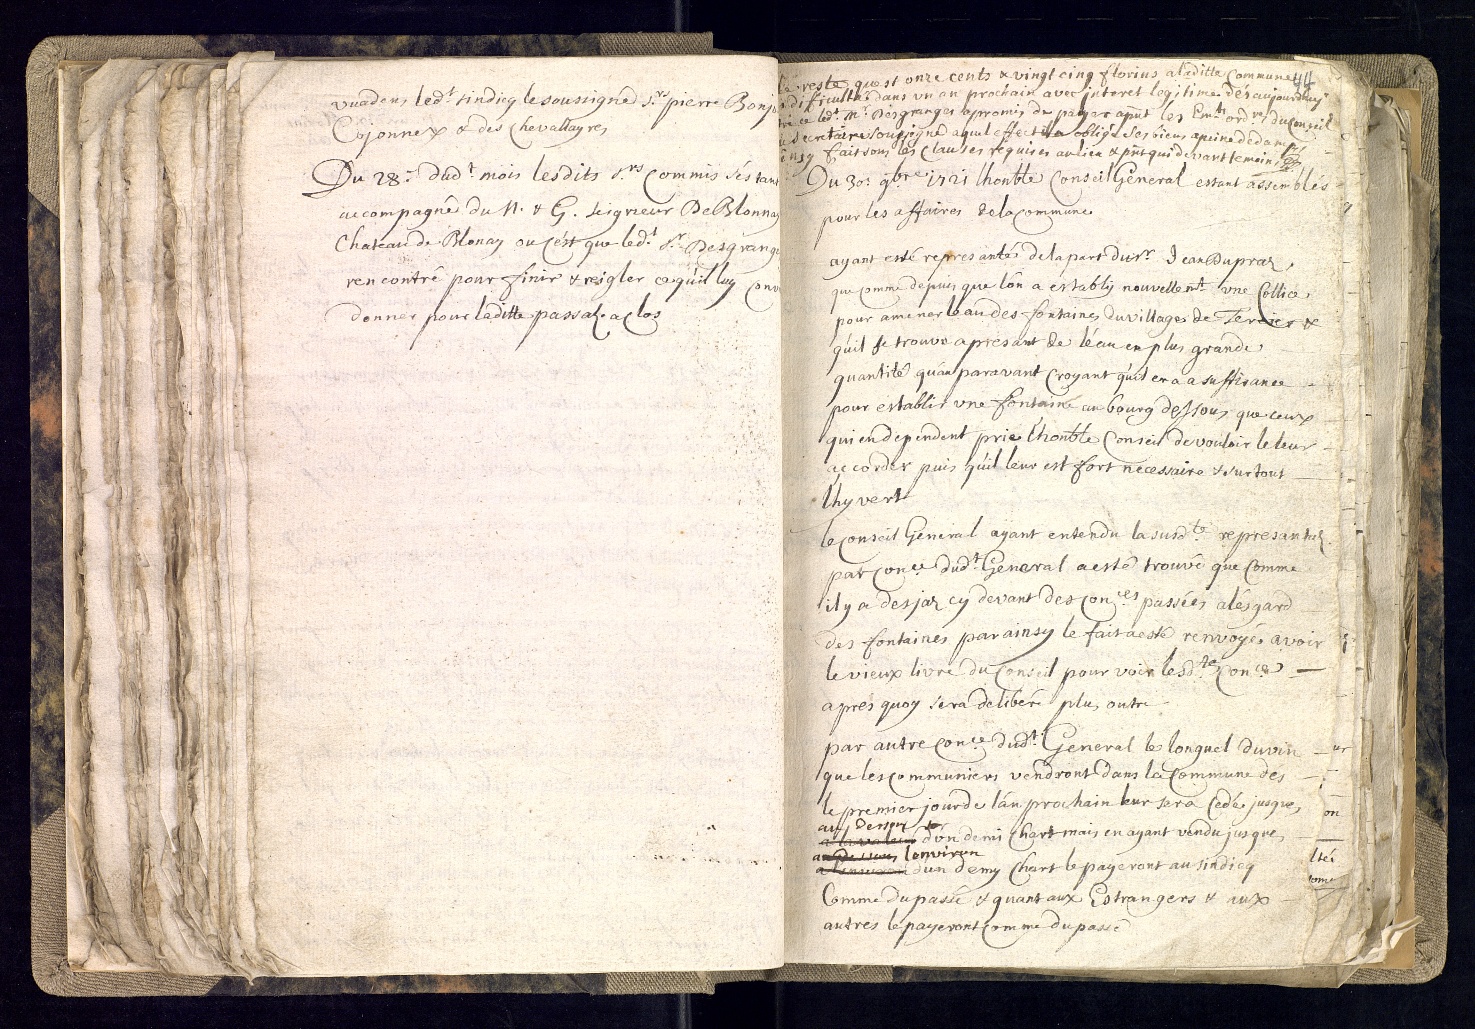 vuadens ledt sindicq le soussigné Srs pierre Bonjo
Cojonnex & des Chevallayres
Du 28e dudt mois lesdits Srs Commis s'éstant
accompagné du N. & G. seigneur De Blonnay
Chateau de Blonay ou c'ést que ledt Sr Desgrange
rencontré pour finir & reigler ce qu'il luy conv
donner pour laditte passaz a clos
44
le reste que st onze cents & vingt cinq florins a laditte Commune
difficulté dans vn an prochain avec interet legitime dès aujourdhuy
ce ledt Mr Desgranges a promis de payer apnt les Emts ordres du Conseil
secretaire soussigné a quel effect il a obligé ses biens a peine de dam
fait sous les clauses requises au lieu & pnt que devant temoins
Du 30e 9bre 1721 lhonble Conseil General estant assemblés
pour les affaires de la Commune
ayant esté representé de la part du sr Jean Dupraz
que comme depuis que lón a éstably nouvellemt vne Collice
pour amener leau des fontaines du village de Tercier &
quil se trouve apresant de léau en plus grande
quantité quán paravant croyant qu'il en a a suffisance
pour establir vne fontaine au bourg dessous que ceux
qui en dependent prie lhonble Conseil de vouloir le leur
accorder puis qu'il leur est fort necessaire & surtout
lhyvert
le Conseil General ayant entendu la susdte represantaz
par conce dudt General a esté trouvé que Comme
il y a desjaz cy devant des conces passées a lésgard
des fontaines par ainsy le fait a esté renvoyé a voir
le vieux livre du Conseil pour voir lesdte conces
apres quoy sera deliberé plus outre
par autre conce dudt General le longuel du vin
que les communiers vendront dans la Commune des
le premier jour de lán prochain leur sera Cedé jusque
au dessus
dún demi Chart mais en ayant vendu jusque
lenviron
dun demy Chart le payeront au sindicq
Comme du passé & quant aux Estrangers & aux
autres le payeront comme du passé